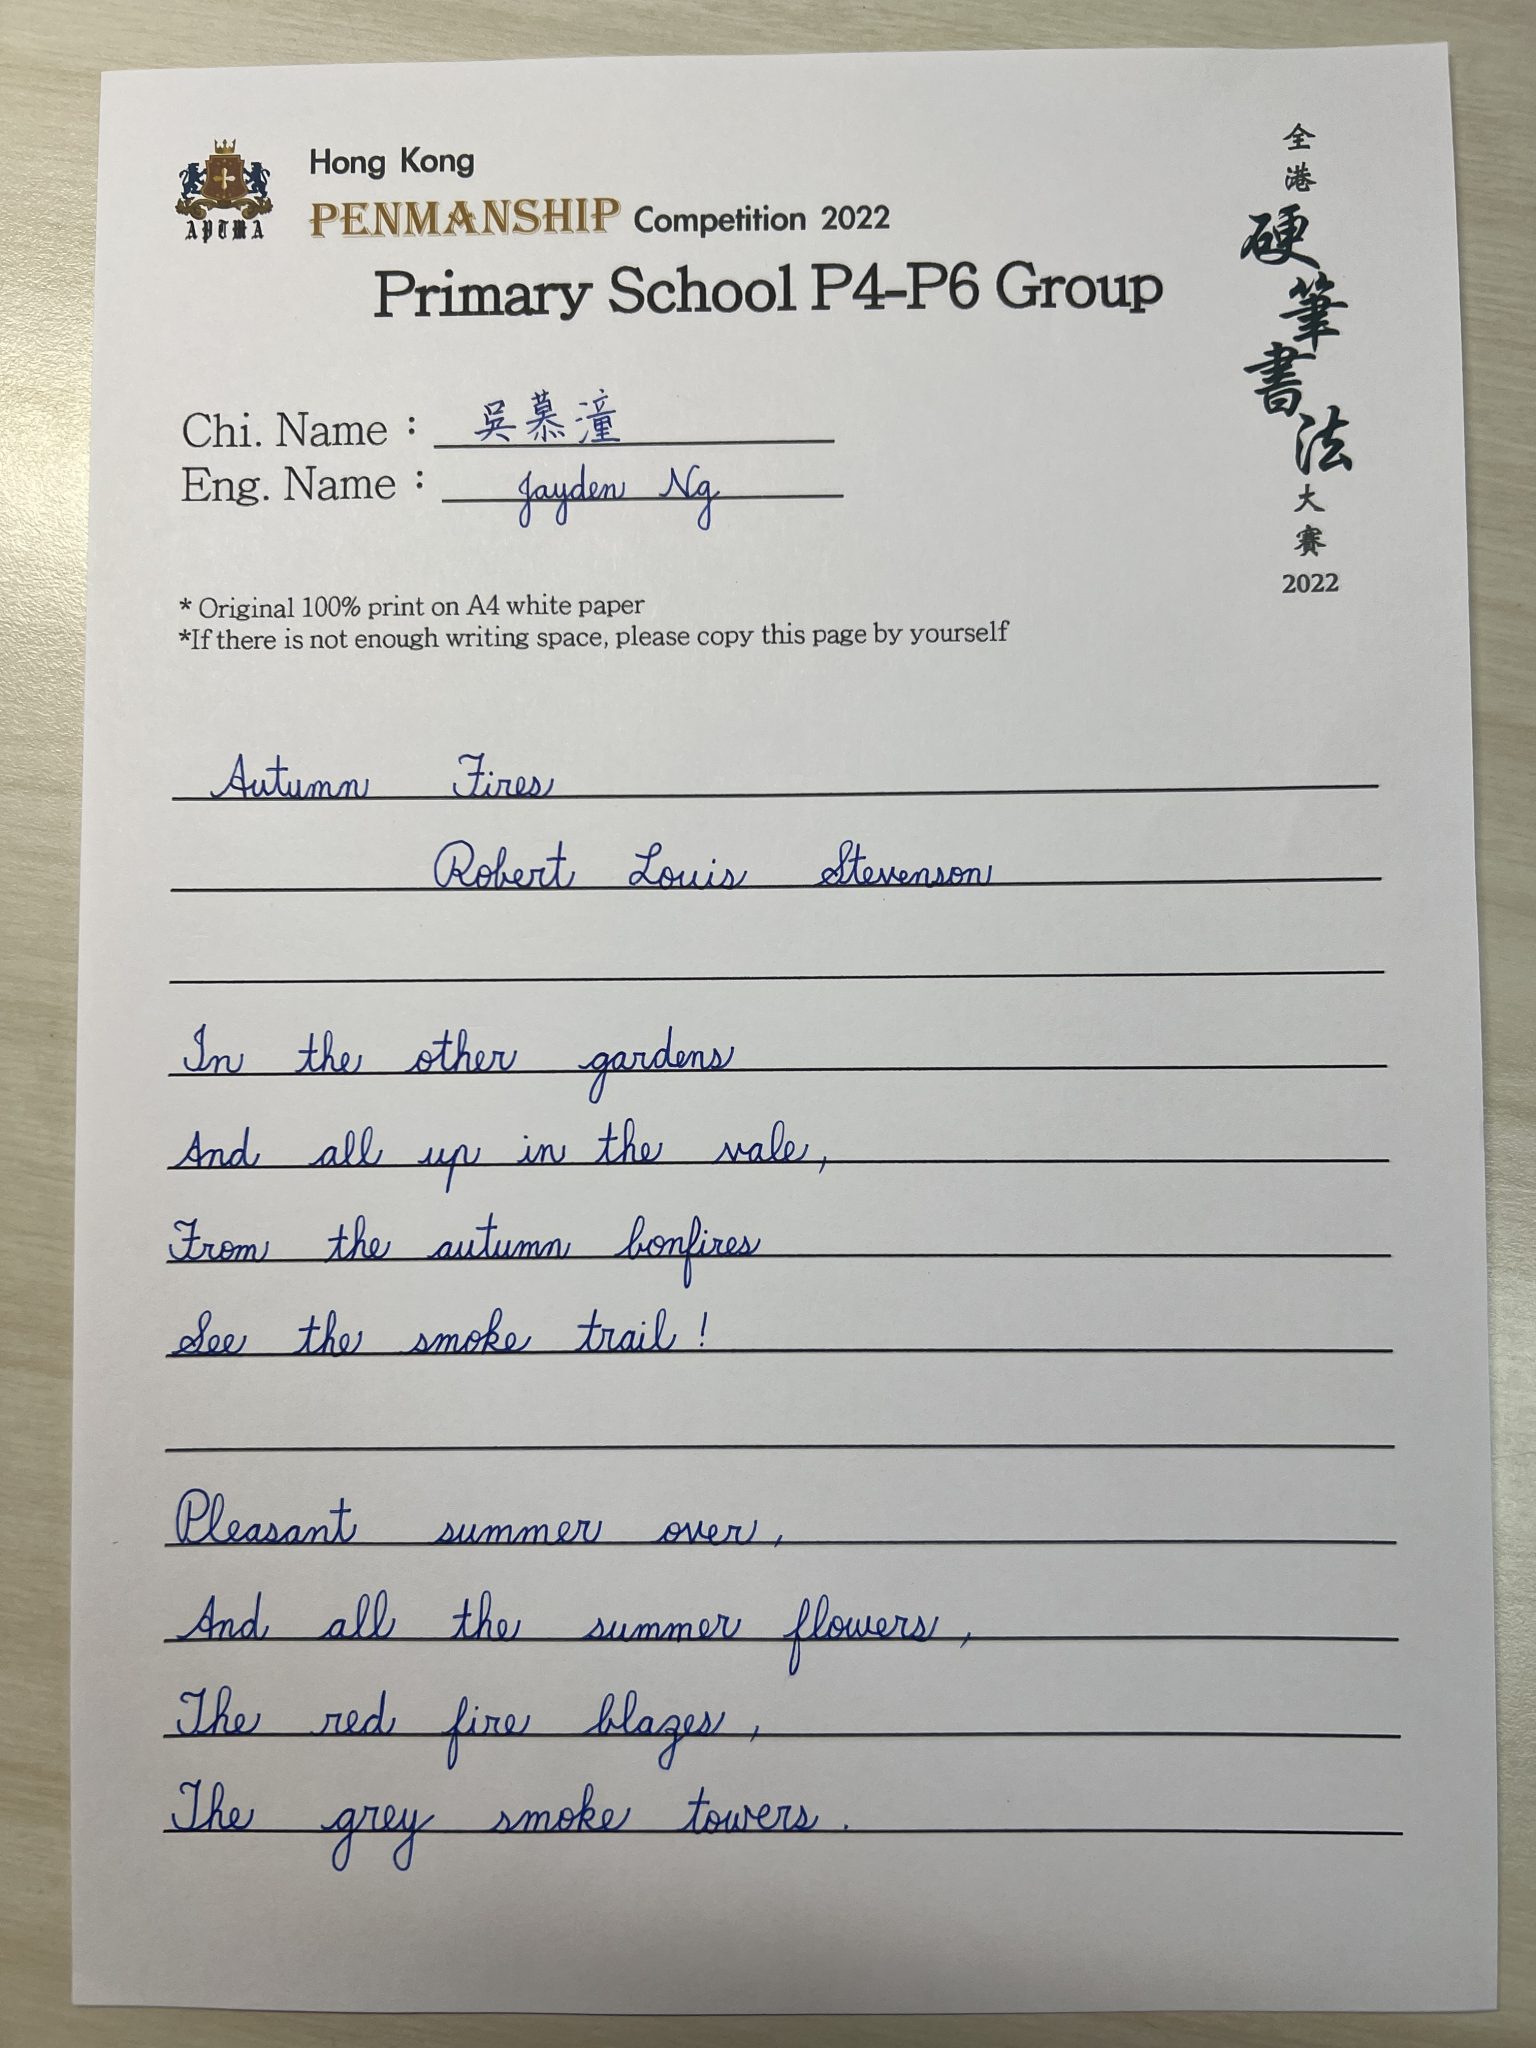 APTMA
Hong Kong
PENMANSHIP Competition 2022
Primary School P4-P6 Group
全港硬筆書法大賽
2022
Chi. Name : 吳慕潼
Eng. Name : Jayden Ng
* Original 100% print on A4 white paper
*If there is not enough writing space, please copy this page by yourself
Autumn Fires
Robert Louis Stevenson
In the other gardens
And all up in the vale,
From the autumn bonfires
See the smoke trail!
Pleasant summer over,
And all the summer flowers,
The red fire blazes,
The grey smoke towers.